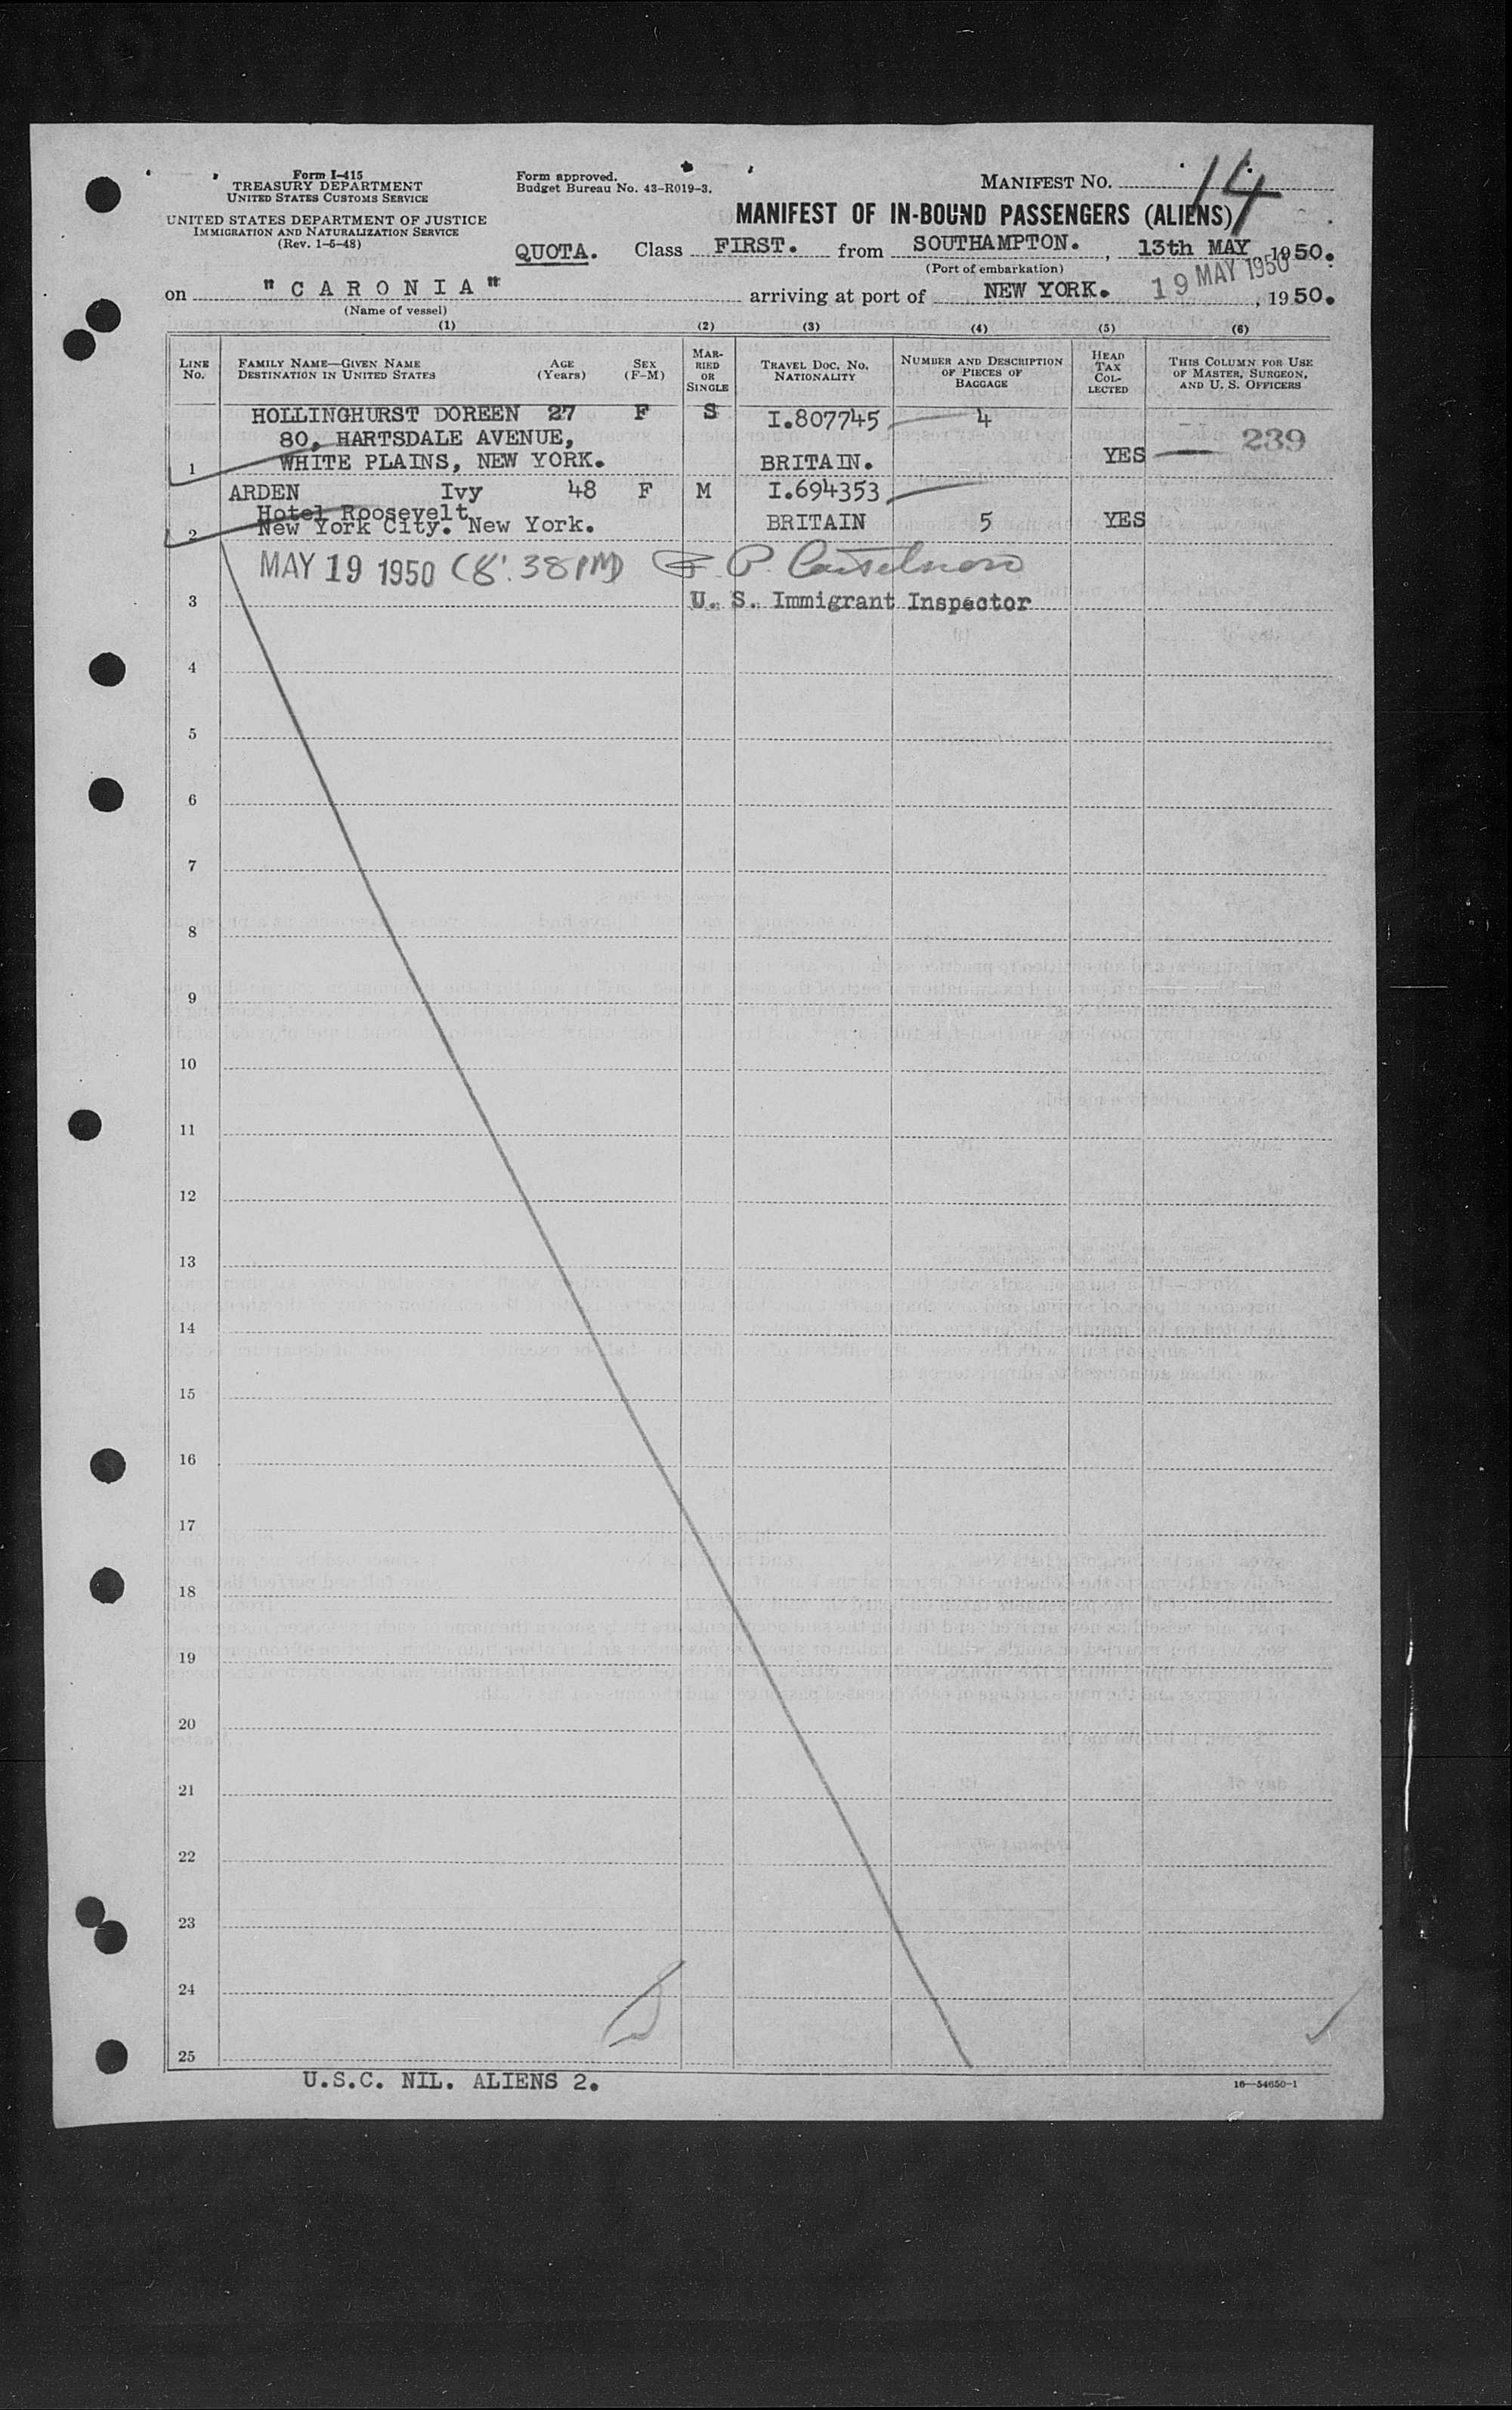 Form I-415
TREASURY DEPARTMENT
UNITED STATES CUSTOMS SERVICE
UNITED STATES DEPARTMENT OF JUSTICE
IMMIGRATION AND NATURALIZATION SERVICE
(Rev. 1-5-48)
Form approved.
Budget Bureau No. 43-R019-3.
MANIFEST NO. 14
MANIFEST OF IN-BOUND PASSENGERS (ALIENS)
QUOTA. Class FIRST. from SOUTHAMPTON. , 13th MAY, 1950.
(Port of embarkation)
19 MAY 1950
on "CARONIA" arriving at port of NEW YORK. , 1950.
(Name of vessel)
(1) (2) (3) (4) (5) (6)
LINE NO.
FAMILY NAME—GIVEN NAME
DESTINATION IN UNITED STATES
AGE (Years)
SEX (F-M)
MARRIED OR SINGLE
TRAVEL DOC. NO.
NATIONALITY
NUMBER AND DESCRIPTION OF PIECES OF BAGGAGE
HEAD TAX COLLECTED
THIS COLUMN FOR USE OF MASTER, SURGEON, AND U. S. OFFICERS
HOLLINGHURST DOREEN 27 F S I.807745 4
80, HARTSDALE AVENUE, 239
1 WHITE PLAINS, NEW YORK. BRITAIN. YES
ARDEN Ivy 48 F M I.694353
Hotel Roosevelt
2 New York City. New York. BRITAIN 5 YES
MAY 19 1950 (8:38PM)
3 U. S. Immigrant Inspector
4
5
6
7
8
9
10
11
12
13
14
15
16
17
18
19
20
21
22
23
24
25
U.S.C. NIL. ALIENS 2.
16—54650-1